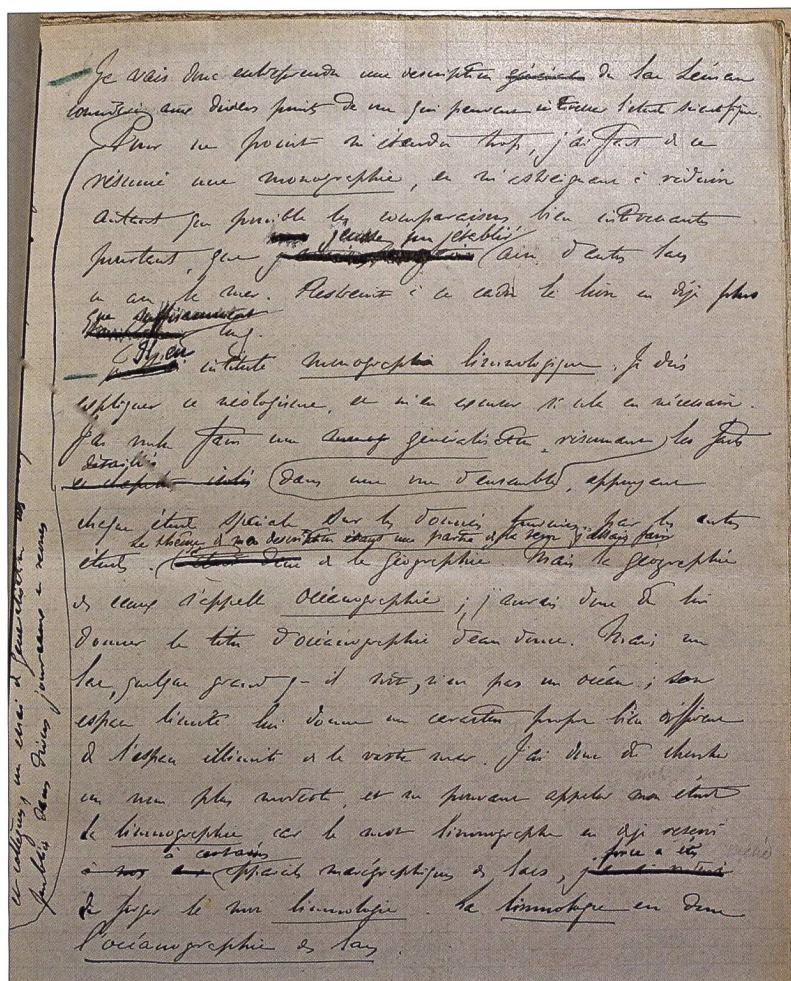 Je vais donc entreprendre une description générale du lac Léman
considéré aux divers points de vue qui peuvent intéresser l'étude scientifique.
Pour ne point m'étendre trop, j'ai fait de ce
résumé une monographie, en m'astreignant à réduire
autant que possible les comparaisons bien intéressantes
pourtant, que j'eusse pu établir avec d'autres lacs
ou avec la mer. Restreint à ce cadre le livre est déjà plus
que suffisamment long.
intitulé monographie limnologique. Je dois
expliquer ce néologisme, et m'en excuser si cela est nécessaire.
J'ai voulu faire une généralisation, résumant les faits
détaillés
et chapitres isolés dans une vue d'ensemble, appuyant
chaque étude spéciale sur les données fournies par les autres
Le thème de ma description étant une partie de la terre j'allais faire
études. de la géographie. Mais la géographie
des eaux s'appelle océanographie ; j'aurais donc dû lui
donner le titre d'océanographie d'eau douce. Mais un
lac, quelque grand q- il soit, n'est pas un océan ; son
espace limité lui donne un caractère propre bien différent
de l'espace illimité de la vaste mer. J'ai donc dû chercher
un nom plus modeste, et ne pouvant appeler mon étude
la limnographie car le mot limnographe est déjà réservé
à certains force a été
appareils marégraphiques des lacs,
de forger le mot limnologie. La limnologie est donc
l'océanographie des lacs.
et collègues, un essai de généralisation des
publiés dans divers journaux et revues